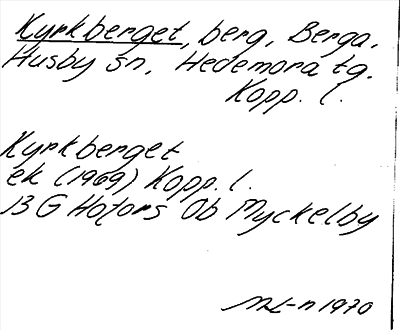 Kyrkberget, berg, Berga,
Husby sn, Hedemora tg.
Kopp. l.
Kyrkberget
ek (1969) Kopp. l.
13 G Hofors Ob Myckelby
1970